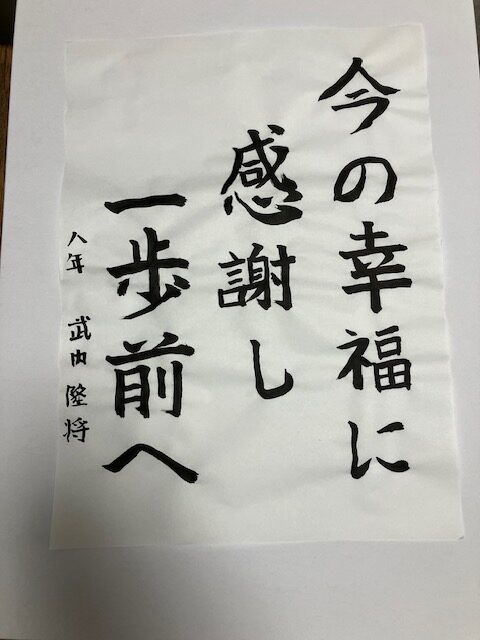 今の幸福に
感謝し
一歩前へ
八年 武内 陸将